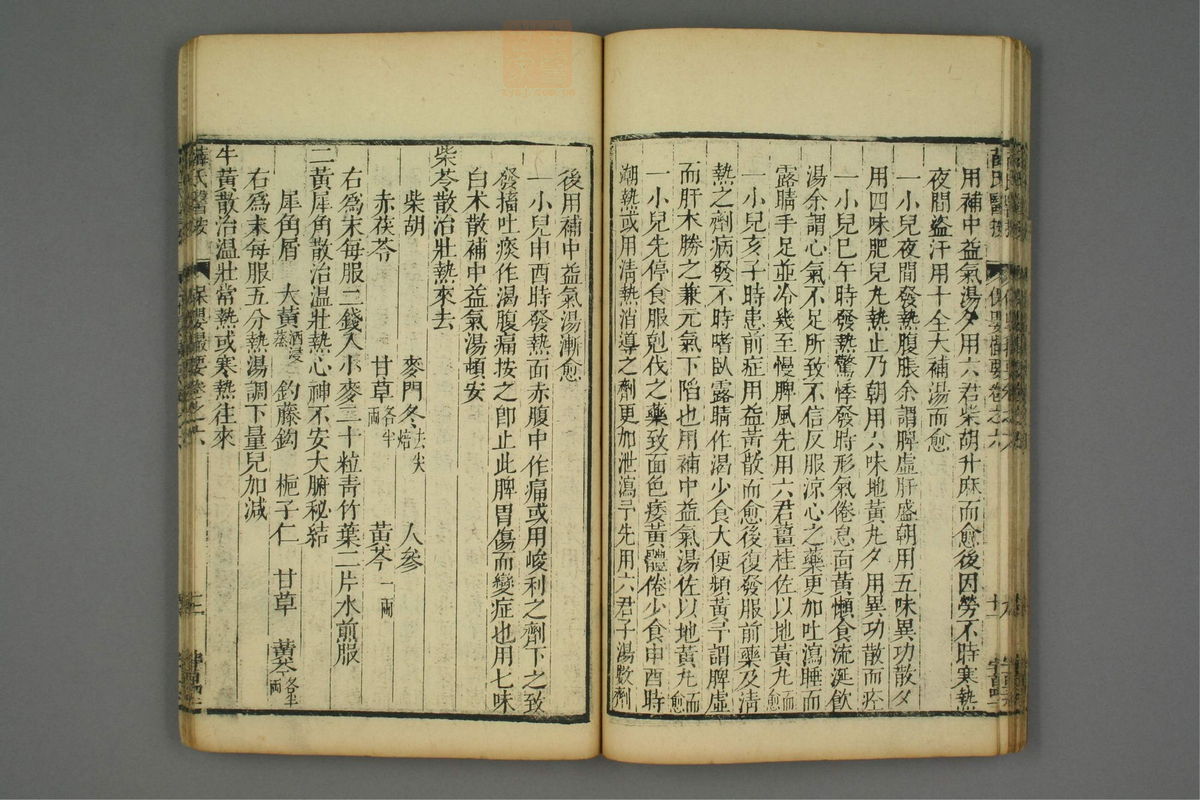 用補中益氣湯夕用六君柴胡升麻而愈後因勞不時寒熱
夜間盜汗用十全大補湯而愈
一小兒夜間發熱腹脹余謂脾虛肝盛朝用五味異功散夕
用四味肥兒丸熱止乃朝用六味地黃丸夕用異功散而痊
一小兒巳午時發熱驚悸發時形氣倦怠面黃懶食流涎飲
湯余謂心氣不足所致不信反服涼心之藥更加吐瀉睡而
露睛手足並冷幾至慢脾風先用六君薑桂佐以地黃丸而愈
一小兒亥子時患前症用益黃散而愈後復發服前藥及淸
熱之劑病發不時嗜臥露睛作渴少食大便頻黃予謂脾虛
而肝木勝之兼元氣下陷也用補中益氣湯佐以地黃丸而愈
一小兒先停食服剋伐之藥致面色痿黃體倦少食申酉時
潮熱或用淸熱消導之劑更加泄瀉予先用六君子湯數劑
後用補中益氣湯漸愈
一小兒申酉時發熱面赤腹中作痛或用峻利之劑下之致
發搐吐痰作渴腹痛按之卽止此脾胃傷而變症也用七味
白术散補中益氣湯頓安
柴苓散治壯熱來去
柴胡 麥門冬去尖焙 人參
赤茯苓 甘草各半兩 黃芩一兩
右爲末每服二錢入小麥二十粒靑竹葉二片水煎服
二黃犀角散治溫壯熱心神不安大腑秘結
犀角屑 大黃酒浸蒸 釣藤鈎 梔子仁 甘草 黃芩各半兩
右爲末每服五分熱湯調下量兒加減
牛黃散治溫壯常熱或寒熱往來
薛氏醫按 保嬰撮要卷之六